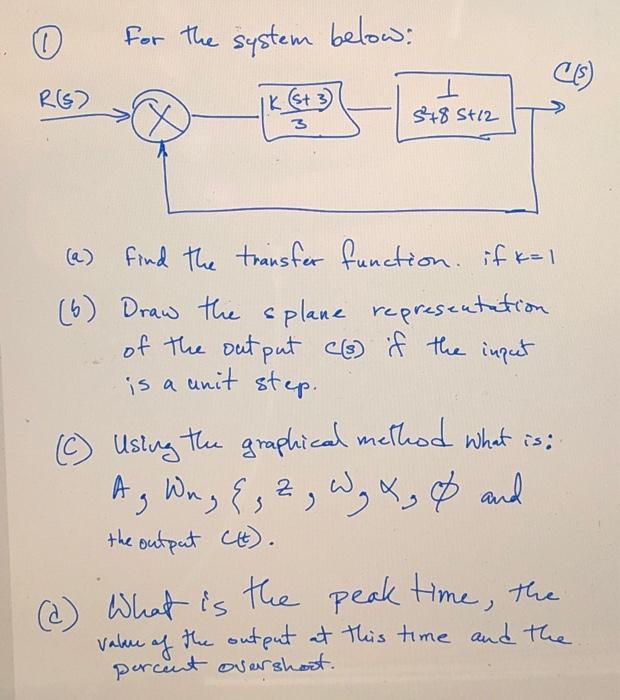 ① For the system below:
C(s)
R(s)
K(s+3)
3
1
s²+8s+12
(a) Find the transfer function. if k=1
(b) Draw the s plane representation
of the output C(s) if the input
is a unit step.
(c) Using the graphical method what is:
A, Wn, ξ, z, W, α, Ø and
the output C(t).
(d) What is the peak time, the
value of the output at this time and the
percent overshoot.